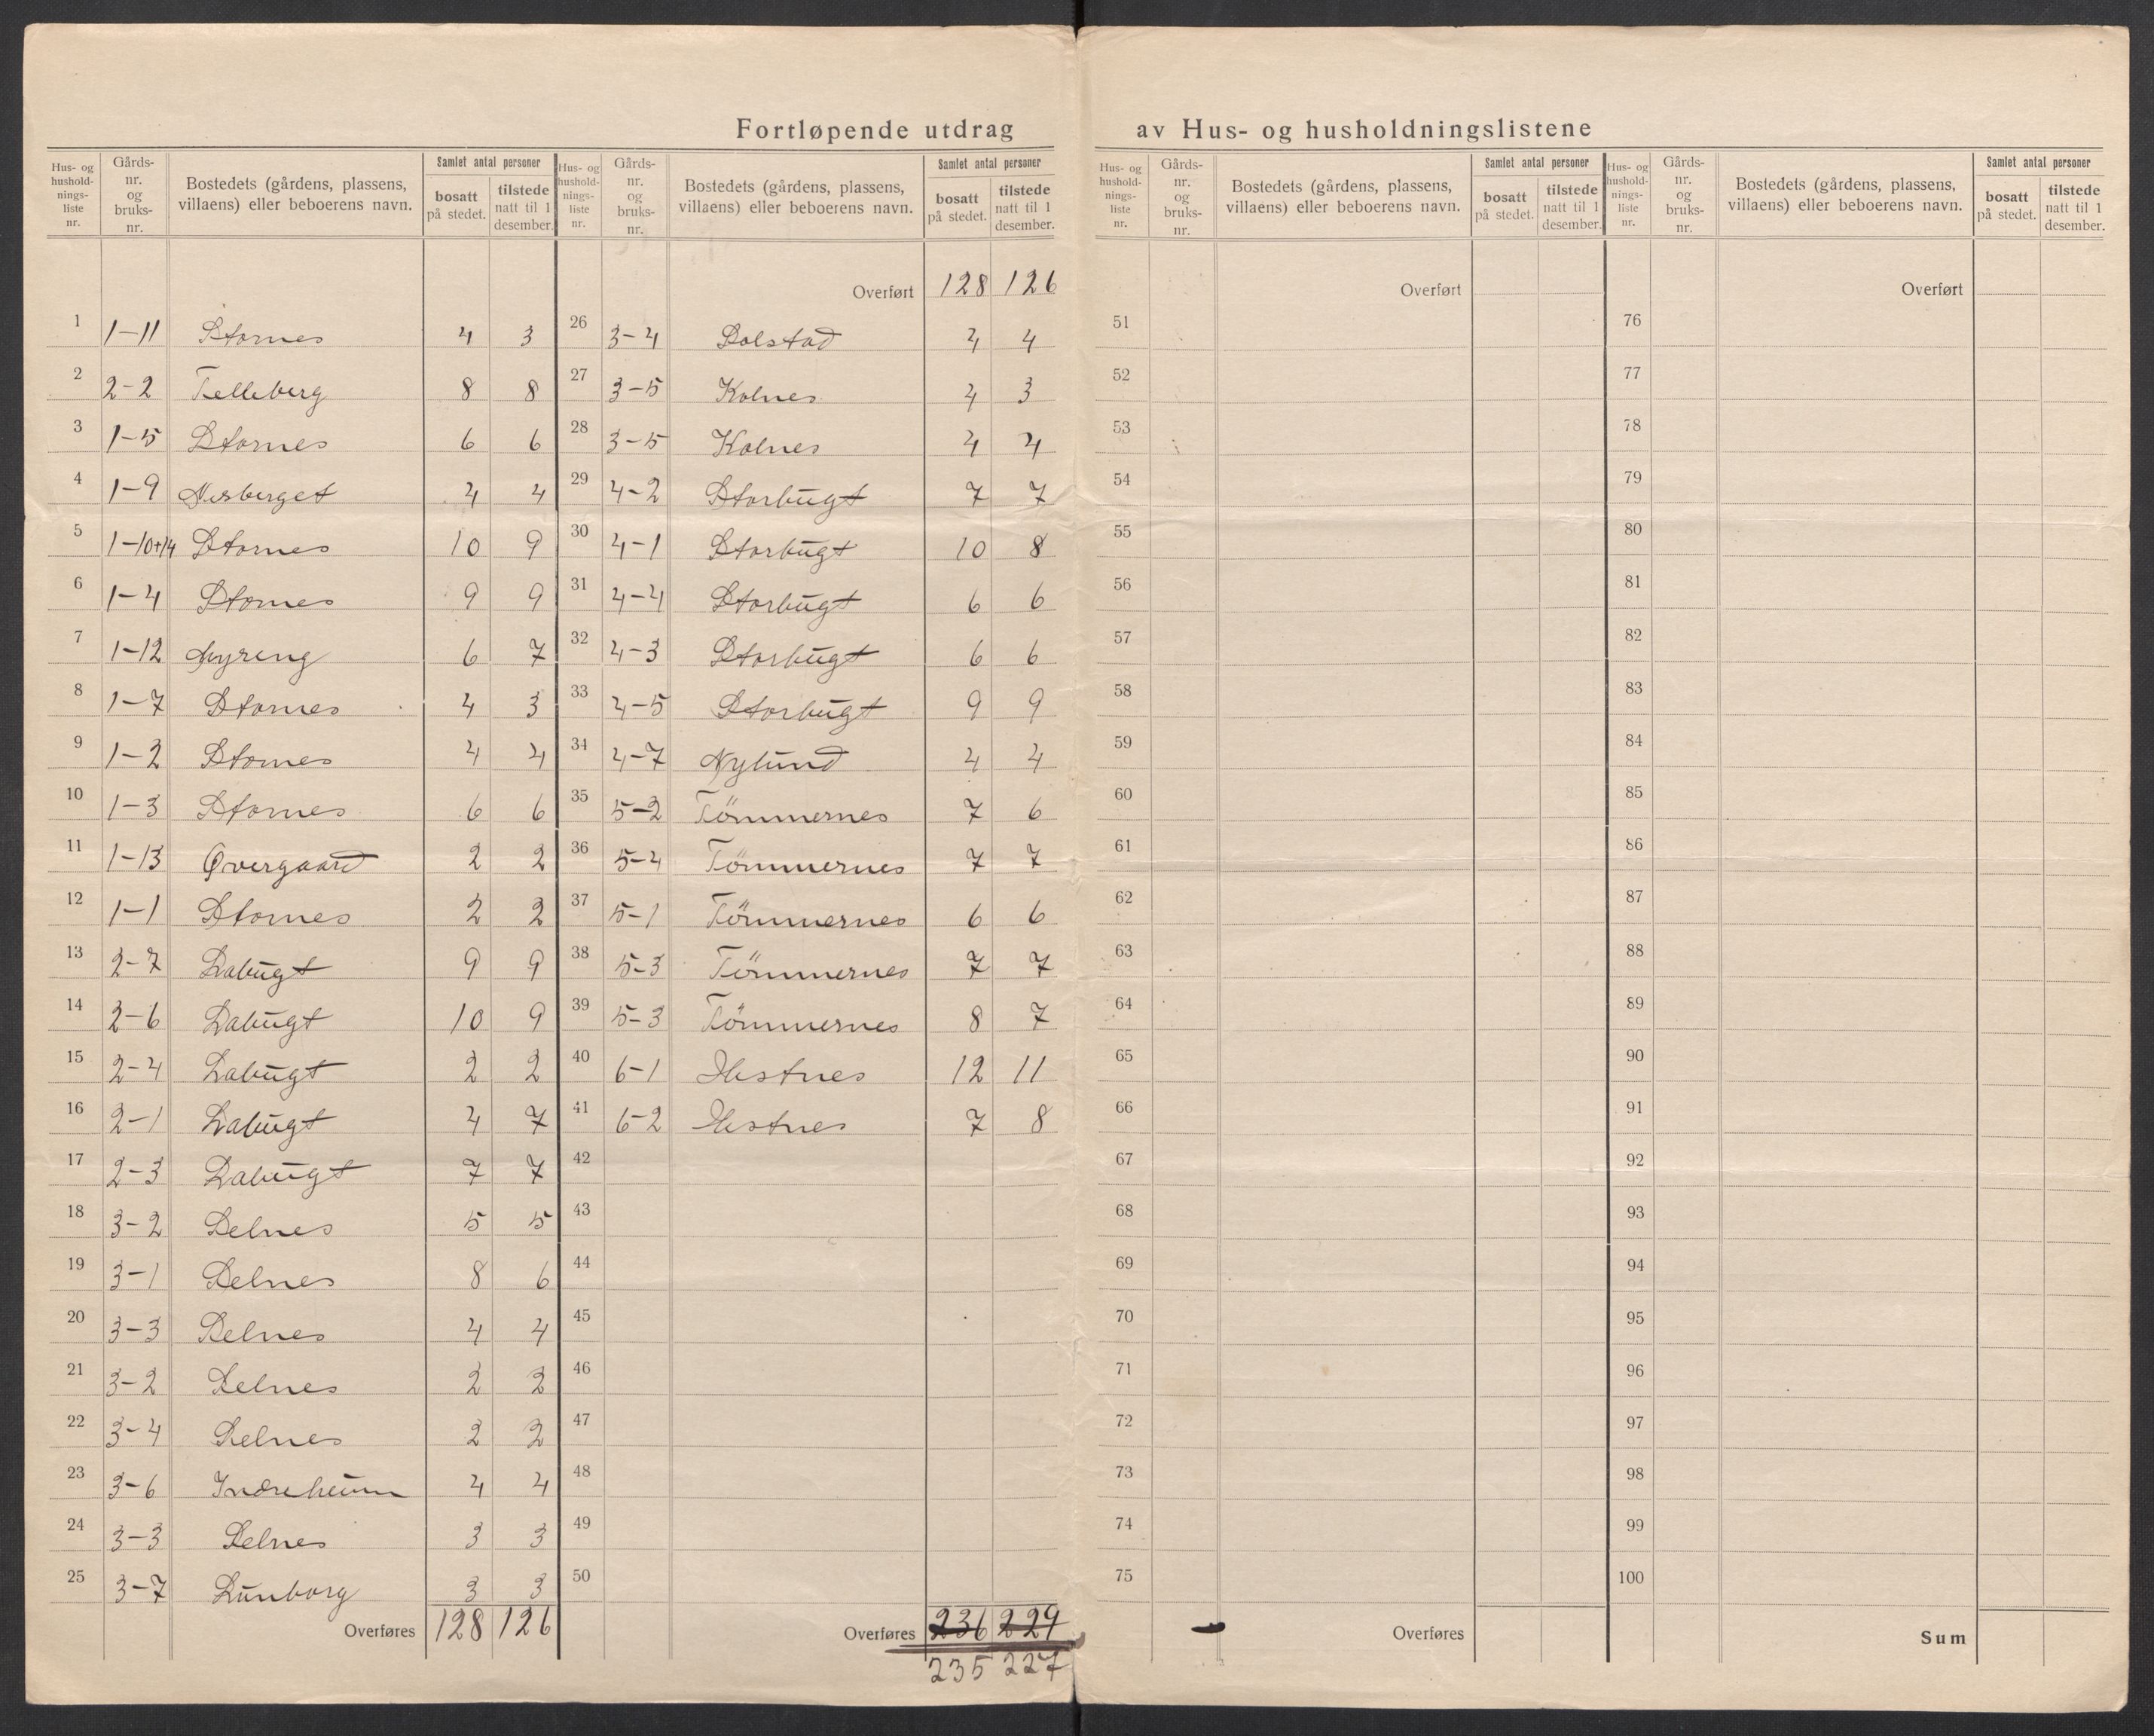 Fortløpende utdrag av Hus- og husholdningslistene
Hus- og hushold-nings-liste nr. Gårds-nr. og bruks-nr. Bostedets (gårdens, plassens, villaens) eller beboerens navn. Samlet antal personer bosatt på stedet. tilstede natt til 1 desember.
1 1-11 Stornes 4 3
2 2-2 Telleberg 8 8
3 1-5 Stornes 6 6
4 1-9 Nesberget 4 4
5 1-10+14 Stornes 10 9
6 1-4 Stornes 9 9
7 1-12 Myreng 6 7
8 1-7 Stornes 4 3
9 1-2 Stornes 4 4
10 1-3 Stornes 6 6
11 1-13 Øvergaard 2 2
12 1-1 Stornes 2 2
13 2-7 Labugt 9 9
14 2-6 Labugt 10 9
15 2-4 Labugt 2 2
16 2-1 Labugt 4 7
17 2-3 Labugt 7 7
18 3-2 Selnes 5 5
19 3-1 Selnes 8 6
20 3-3 Selnes 4 4
21 3-2 Selnes 2 2
22 3-4 Selnes 2 2
23 3-6 Indreheim 4 4
24 3-3 Selnes 3 3
25 3-7 Lunborg 3 3
Overføres 128 126
Hus- og hushold-nings-liste nr. Gårds-nr. og bruks-nr. Bostedets (gårdens, plassens, villaens) eller beboerens navn. Samlet antal personer bosatt på stedet. tilstede natt til 1 desember.
Overført 128 126
26 3-4 Solstad 4 4
27 3-5 Kolnes 4 3
28 3-5 Kolnes 4 4
29 4-2 Storbugt 7 7
30 4-1 Storbugt 10 8
31 4-4 Storbugt 6 6
32 4-3 Storbugt 6 6
33 4-5 Storbugt 9 9
34 4-7 Nylund 4 4
35 5-2 Tömmernes 7 6
36 5-4 Tömmernes 7 7
37 5-1 Tömmernes 6 6
38 5-3 Tömmernes 7 7
39 5-3 Tömmernes 8 7
40 6-1 Hestnes 12 11
41 6-2 Hestnes 7 8
42
43
44
45
46
47
48
49
50
Overføres 236 229
235 227
Hus- og hushold-nings-liste nr. Gårds-nr. og bruks-nr. Bostedets (gårdens, plassens, villaens) eller beboerens navn. Samlet antal personer bosatt på stedet. tilstede natt til 1 desember.
Overført
51
52
53
54
55
56
57
58
59
60
61
62
63
64
65
66
67
68
69
70
71
72
73
74
75
Overføres
Hus- og hushold-nings-liste nr. Gårds-nr. og bruks-nr. Bostedets (gårdens, plassens, villaens) eller beboerens navn. Samlet antal personer bosatt på stedet. tilstede natt til 1 desember.
Overført
76
77
78
79
80
81
82
83
84
85
86
87
88
89
90
91
92
93
94
95
96
97
98
99
100
Sum